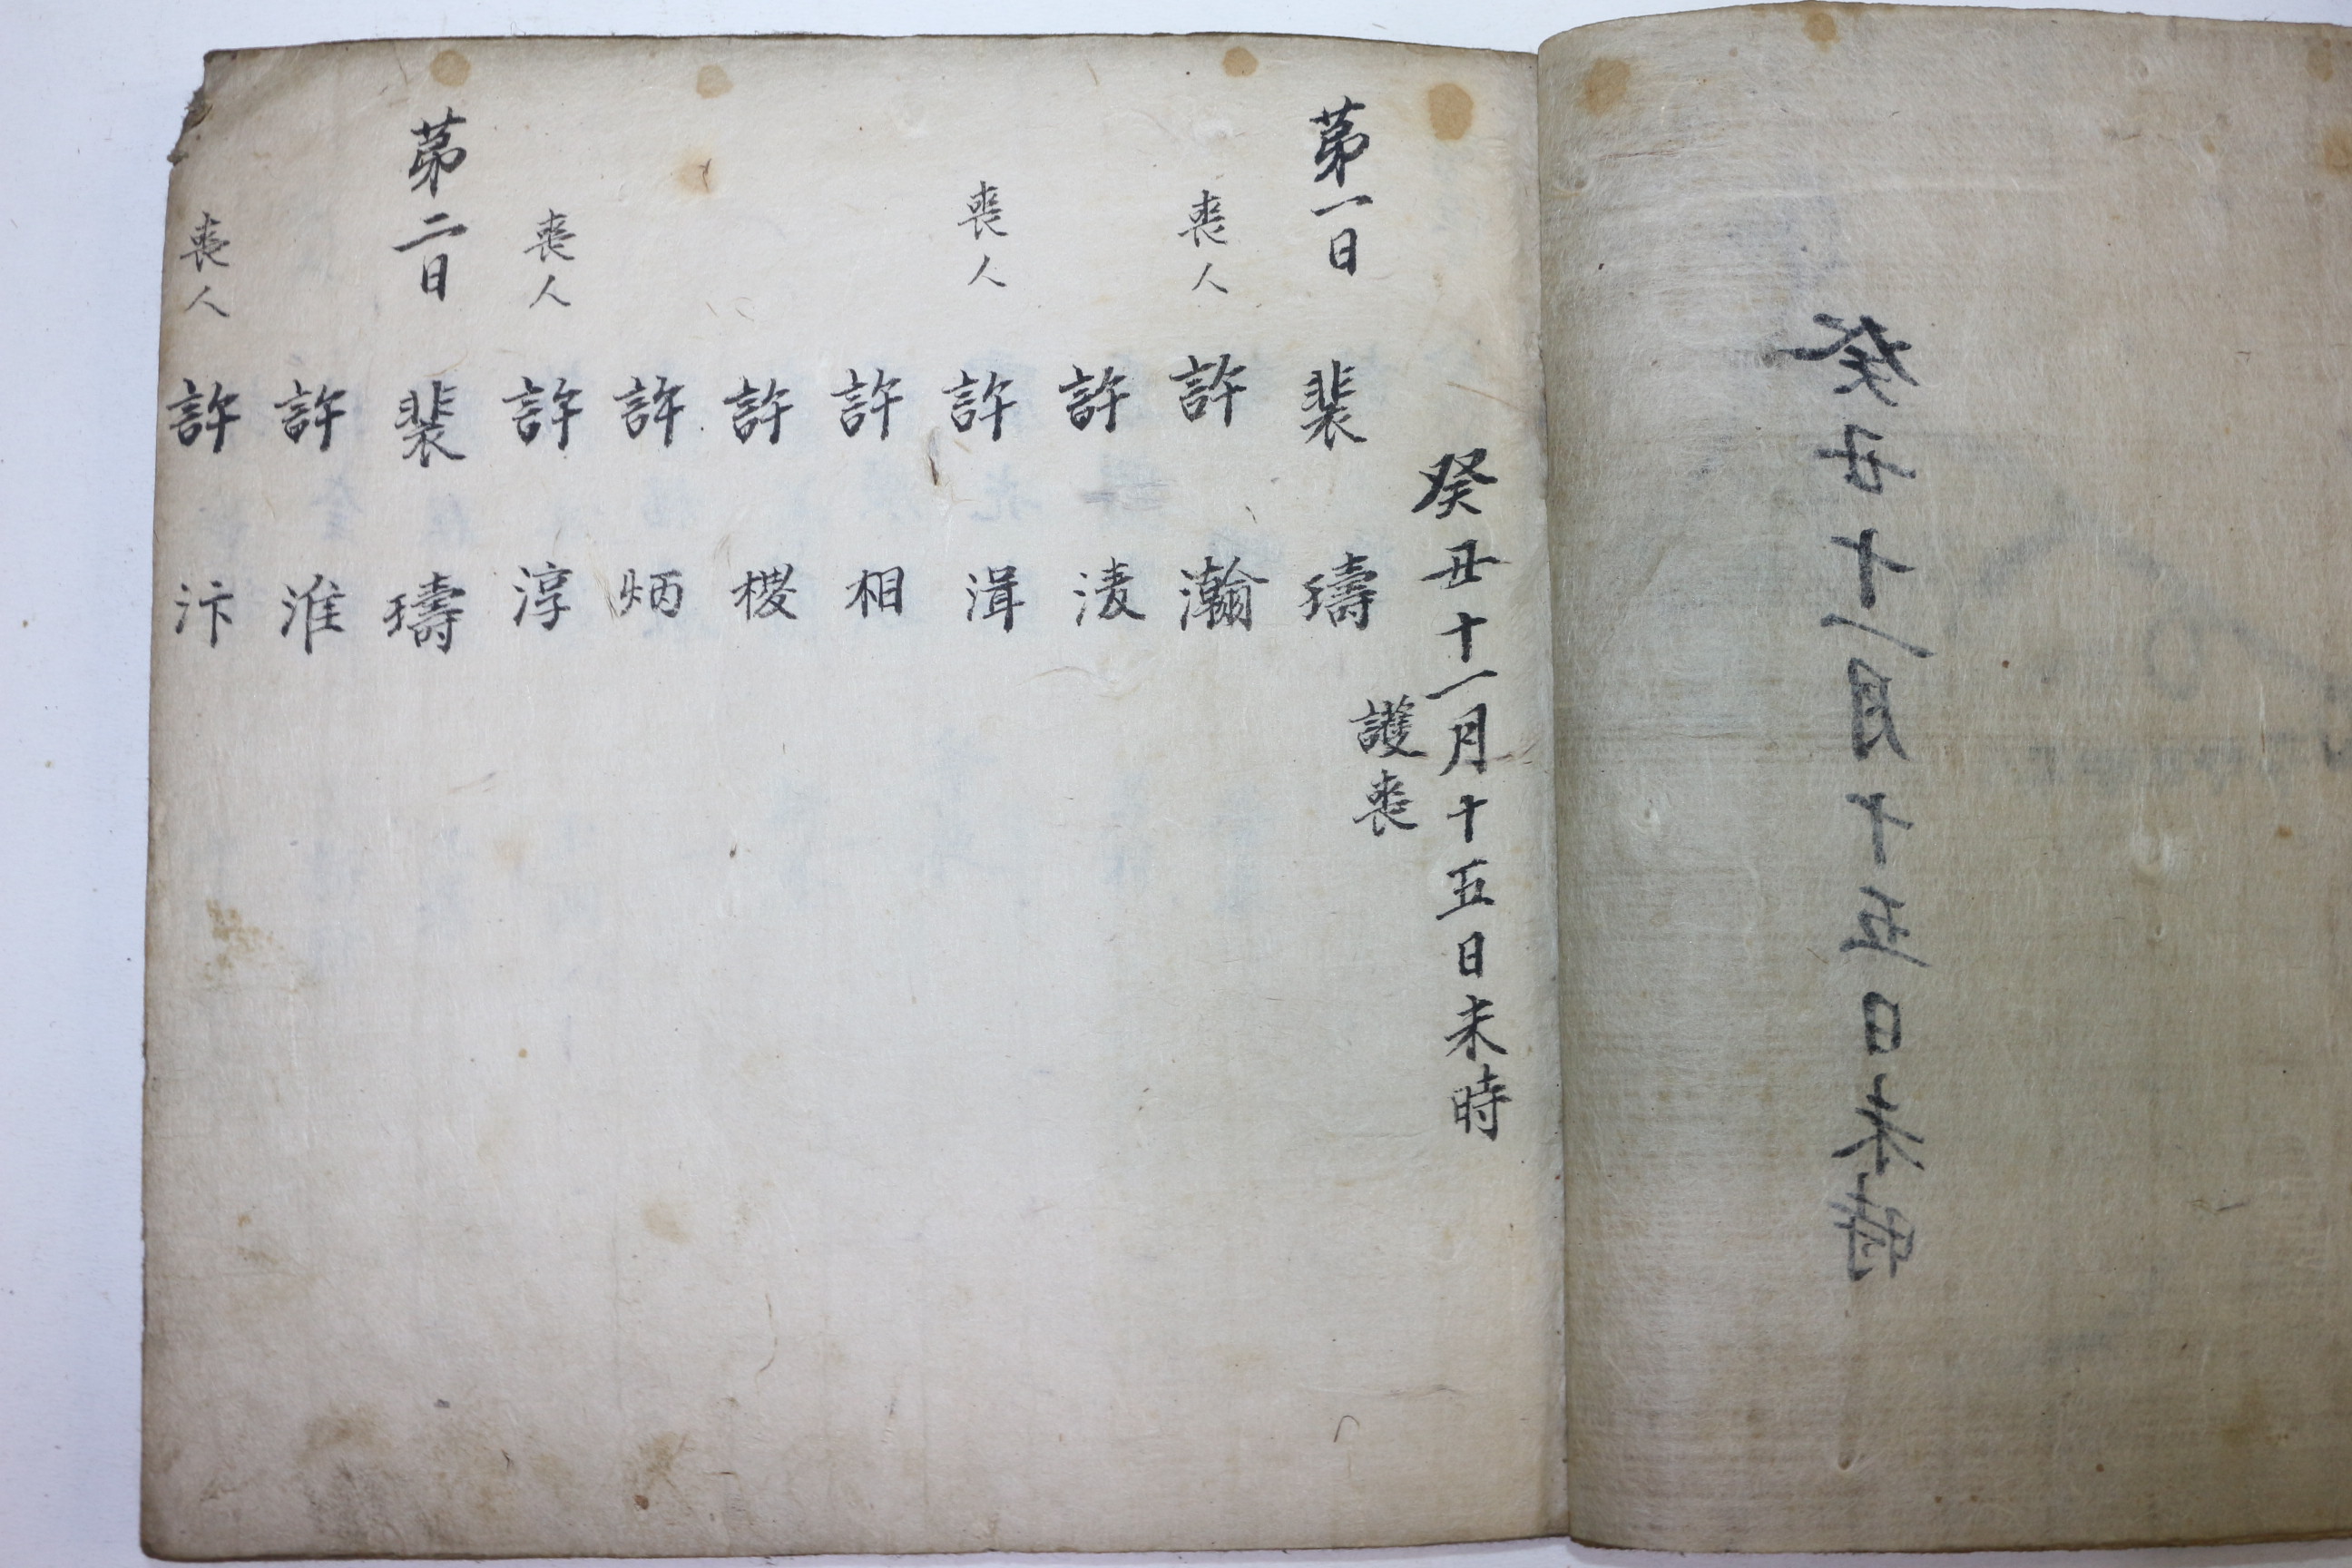 癸丑十一月十五日未時
癸丑十一月十五日未時
護喪
第一日 裴 璹
喪人 許 瀚
許 淒
喪人 許 湒
許 相
許 㮨
許 炳
喪人 許 淳
第二日 裴 璹
許 淮
喪人 許 汴